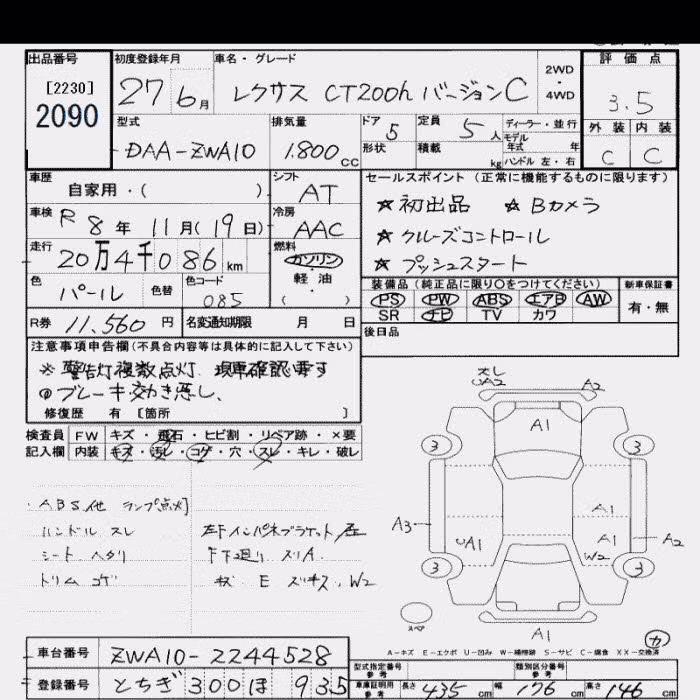 出品番号 初度登録年月 車名・グレード 2WD・4WD 評価点
[2230]
2090
27年 6月 レクサス CT200h バージョンC 3.5
型式 排気量 ドア 5 定員 5人 ディーラー・並行 外装 内装
DAA-ZWA10 1.800cc 形状 積載 kg モデル年式 年 ハンドル 左・右 C C
車歴 シフト セールスポイント(正常に機能するものに限ります)
自家用・( ) AT ☆初出品 ☆Bカメラ
車検 R8年 11月(19日) 冷房 AAC ☆クルーズコントロール
走行 20万4千086km 燃料 ガソリン・軽油・( ) ☆プッシュスタート
色 パール 色替 色コード 085 装備品(純正品に限り○をつけてください) 新車保証書
PS PW ABS エアB AW 有・無
SR ナビ TV カワ
R券 11.560円 名変通知期限 月 日 後日品
注意事項申告欄(不具合内容等は具体的に記入して下さい)
※警告灯複数点灯、現車確認要す
◎ブレーキ効き悪し、
修復歴 有 [箇所 ]
検査員 FW キズ・飛石・ヒビ割・リペア跡・×要
記入欄 内装 キズ・汚レ・コゲ・穴・スレ・キレ・破レ
・ABS、他 ランプ点灯
ハンドル スレ
シート ヘタリ 下下廻り スリA
トリム コゲ E W2
A2
A1
3 3
A1
A3 UA1 A1 A2
W2
3 3
スペ A1 カ
A-キズ E-エクボ U-凹み W-補修跡 S-サビ C-腐食 XX-交換済
車台番号 ZWA10-2244528 型式指定番号 参考 類別区分番号 参考
登録番号 とちぎ 300 ほ 935 車庫証明用 参考 長さ 435cm 幅 176cm 高さ 146cm